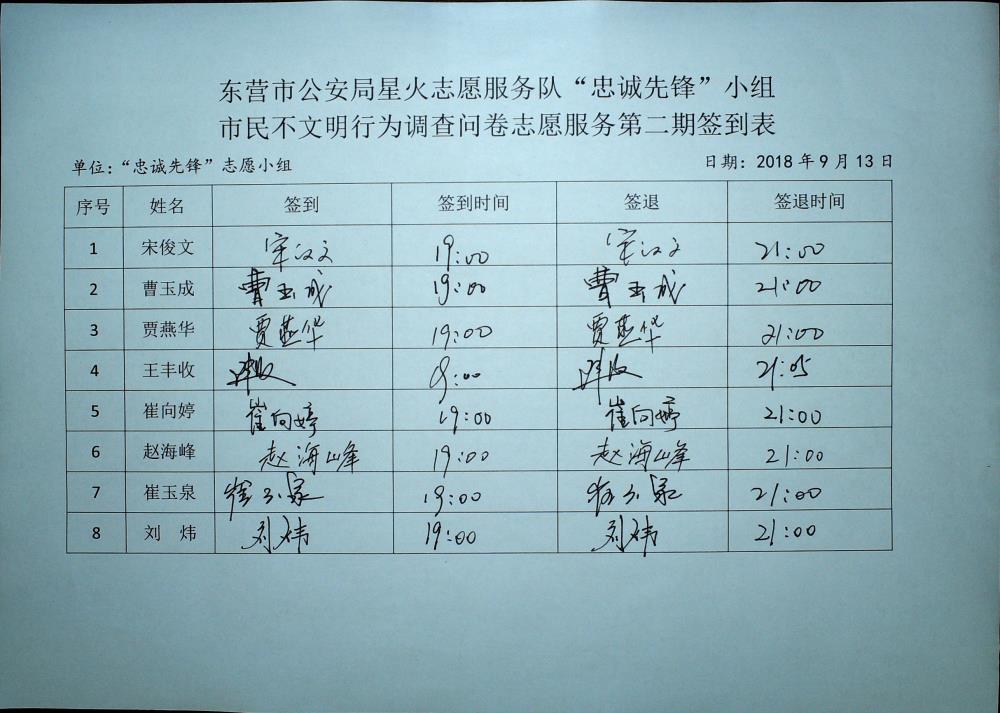 东营市公安局星火志愿服务队“忠诚先锋”小组
市民不文明行为调查问卷志愿服务第二期签到表
单位：“忠诚先锋”志愿小组 日期：2018年9月13日
序号 姓名 签到 签到时间 签退 签退时间
1 宋俊文 19:00 21:00
2 曹玉成 曹玉成 19:00 曹玉成 21:00
3 贾燕华 贾燕华 19:00 贾燕华 21:00
4 王丰收 19:00 21:05
5 崔向婷 崔向婷 19:00 崔向婷 21:00
6 赵海峰 赵海峰 19:00 赵海峰 21:00
7 崔玉泉 19:00 21:00
8 刘 炜 刘炜 19:00 刘炜 21:00